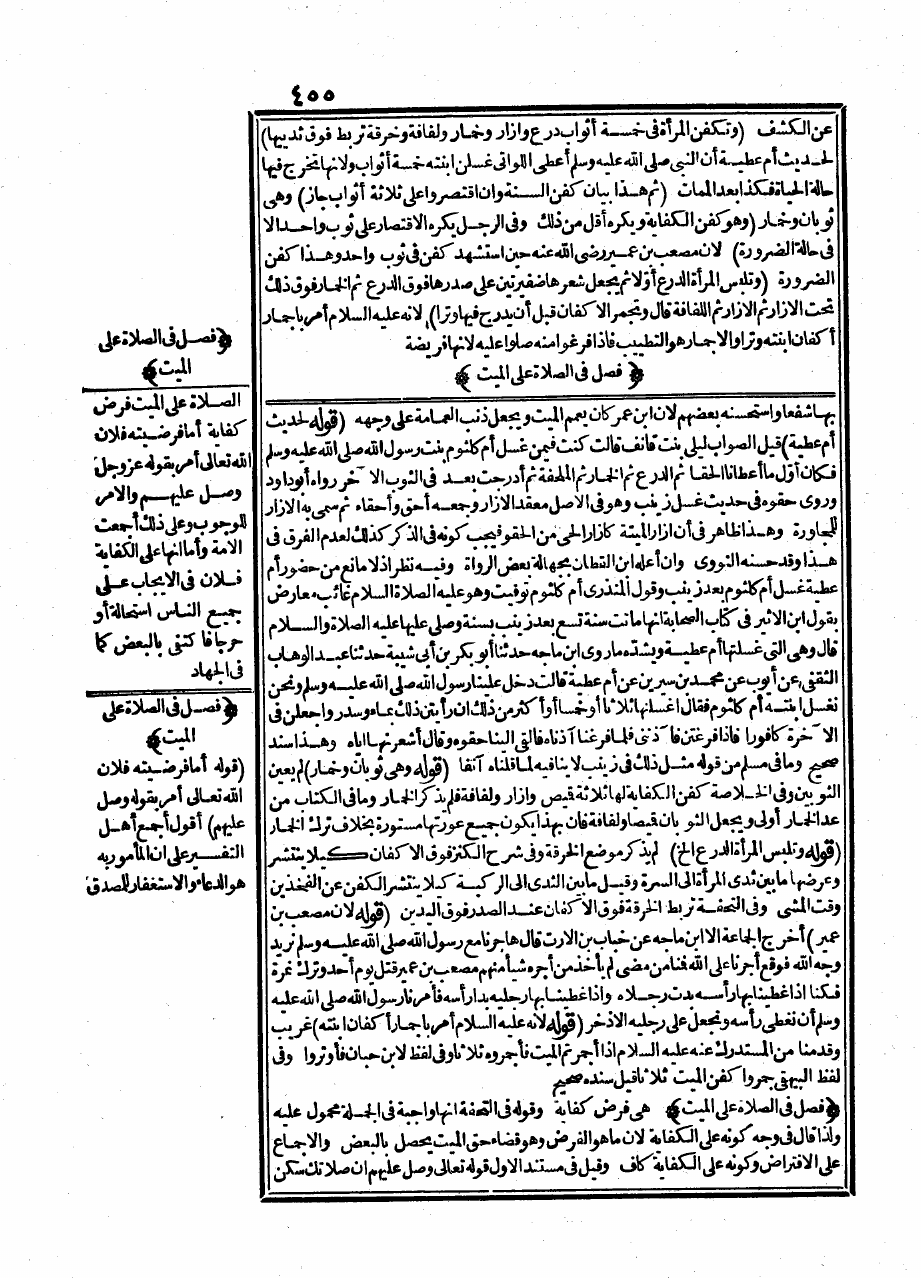 ٤٥٥
عن الكشف (وتكفن المرأة فى خمسة أثواب درع وازار وخمار ولفافة وخرقة تربط فوق ثدييها)
لحديث أم عطية أن النبى صلى الله عليه وسلم أعطى اللواتى غسلن ابنته خمسة أثواب ولانها تخرج فيها
حالة الحياة فكذا بعد الممات (ثم هذا بيان كفن السنة وان اقتصروا على ثلاثة أثواب جاز) وهى
ثوبان وخمار (وهو كفن الكفاية ويكره أقل من ذلك وفى الرجل يكره الاقتصار على ثوب واحد الا
فى حالة الضرورة) لان مصعب بن عمير رضى الله عنه حين استشهد كفن فى ثوب واحد وهذا كفن
الضرورة (وتلبس المرأة الدرع أولا ثم يجعل شعرها ضفيرتين على صدرها فوق الدرع ثم الخمار فوق ذلك
تحت الازار ثم الازار ثم اللفافة قال وتجمر الاكفان قبل أن يدرج فيها وترا) لانه عليه السلام أمر باجمار
أكفان ابنته وترا والاجمار هو التطييب فاذا فرغوا منه صلوا عليه لانها فريضة
﴿فصل فى الصلاة على الميت﴾
بها شفعا واستحسنه بعضهم لان ابن عمر كان يعمم الميت ويجعل ذنب العمامة على وجهه (قوله لحديث
أم عطية) قيل الصواب ليلى بنت قانف قالت كنت فيمن غسل أم كلثوم بنت رسول الله صلى الله عليه وسلم
فكان أول ما أعطانا الحقا ثم الدرع ثم الخمار ثم الملحفة ثم أدرجت بعد فى الثوب الآخر رواه أبو داود
وروى حقوه فى حديث غسل زينب وهو فى الاصل معقد الازار وجمعه أحق وأحقاء ثم سمى به الازار
للمجاورة وهذا ظاهر فى أن ازار الميتة كازار الحى من الحقو فيجب كونه فى الذكر كذلك لعدم الفرق فى
هذا وقد حسنه النووى وان أعله ابن القطان بجهالة بعض الرواة وفيه نظر اذ لا مانع من حضور أم
عطية غسل أم كلثوم بعد زينب وقول المنذرى أم كلثوم توفيت وهو عليه الصلاة السلام غائب معارض
بقول ابن الاثير فى كتاب الصحابة انها ماتت سنة تسع بعد زينب بسنة وصلى عليها عليه الصلاة والسلام
قال وهى التى غسلتها أم عطية ويشده ما روى ابن ماجه حدثنا أبو بكر بن أبى شيبة حدثنا عبد الوهاب
الثقفى عن أيوب عن محمد بن سيرين عن أم عطية قالت دخل علينا رسول الله صلى الله عليه وسلم ونحن
نغسل ابنته أم كلثوم فقال اغسلنها ثلاثا أو خمسا أو أكثر من ذلك ان رأيتن ذلك بماء وسدر واجعلن فى
الآخرة كافورا فاذا فرغتن فآذننى فلما فرغنا آذناه فالقى الينا حقوه وقال أشعرنها اياه وهذا سند
صحيح وما فى مسلم من قوله مثل ذلك فى زينب لا ينافيه لما قلناه آنفا (قوله وهى ثوبان وخمار) لم يعين
الثوبين وفى الخلاصة كفن الكفاية لها ثلاثة قميص وازار ولفافة فلم يذكر الخمار وما فى الكتاب من
عد الخمار أولى ويجعل الثوبان قميصا ولفافة فان بهذا يكون جميع عورتها مستورة بخلاف ترك الخمار
(قوله وتلبس المرأة الدرع الخ) لم يذكر موضع الخرقة وفى شرح الكنز فوق الاكفان كيلا ينتشر
وعرضها ما بين ثدى المرأة الى السرة وقيل ما بين الثدى الى الركبة كيلا ينتشر الكفن عن الفخذين
وقت المشى وفى التحفة تربط الخرقة فوق الاكفان عند الصدر فوق اليدين (قوله لان مصعب بن
عمير) أخرج الجماعة الا ابن ماجه عن خباب بن الارت قال هاجرنا مع رسول الله صلى الله عليه وسلم نريد
وجه الله فوقع أجرنا على الله فمنا من مضى لم يأخذ من أجره شيأ منهم مصعب بن عمير قتل يوم أحد وترك نمرة
فكنا اذا غطينا بها رأسه بدت رجلاه واذا غطينا بها رجليه بدا رأسه فأمرنا رسول الله صلى الله عليه
وسلم أن نغطى رأسه ونجعل على رجليه الاذخر (قوله لانه عليه السلام أمر باجمار أكفان ابنته) غريب
وقدمنا من المستدرك عنه عليه السلام اذا أجمرتم الميت فأجمروه ثلاثا وفى لفظ لابن حبان فأوتروا وفى
لفظ البيهقى جمروا كفن الميت ثلاثا قيل سنده صحيح
﴿فصل فى الصلاة على الميت﴾ هى فرض كفاية وقوله فى التحفة انها واجبة فى الجملة محمول عليه
ولذا قال فى وجه كونه على الكفاية لان ما هو الفرض وهو قضاء حق الميت يحصل بالبعض والاجماع
على الافتراض وكونه على الكفاية كاف وقيل فى مستند الاول قوله تعالى وصل عليهم ان صلاتك سكن
﴿فصل فى الصلاة على
الميت﴾
الصلاة على الميت فرض
كفاية أما فرضيته فلان
الله تعالى أمر بقوله عز وجل
وصل عليهم والامر
للوجوب وعلى ذلك أجمعت
الامة وأما انها على الكفاية
فلان فى الايجاب على
جميع الناس استحالة أو
حرجا فاكتفى بالبعض كما
فى الجهاد
﴿فصل فى الصلاة على
الميت﴾
(قوله أما فرضيته فلان
الله تعالى أمر بقوله وصل
عليهم) أقول أجمع أهل
التفسير على ان المأمور به
هو الدعاء والاستغفار للمصدق